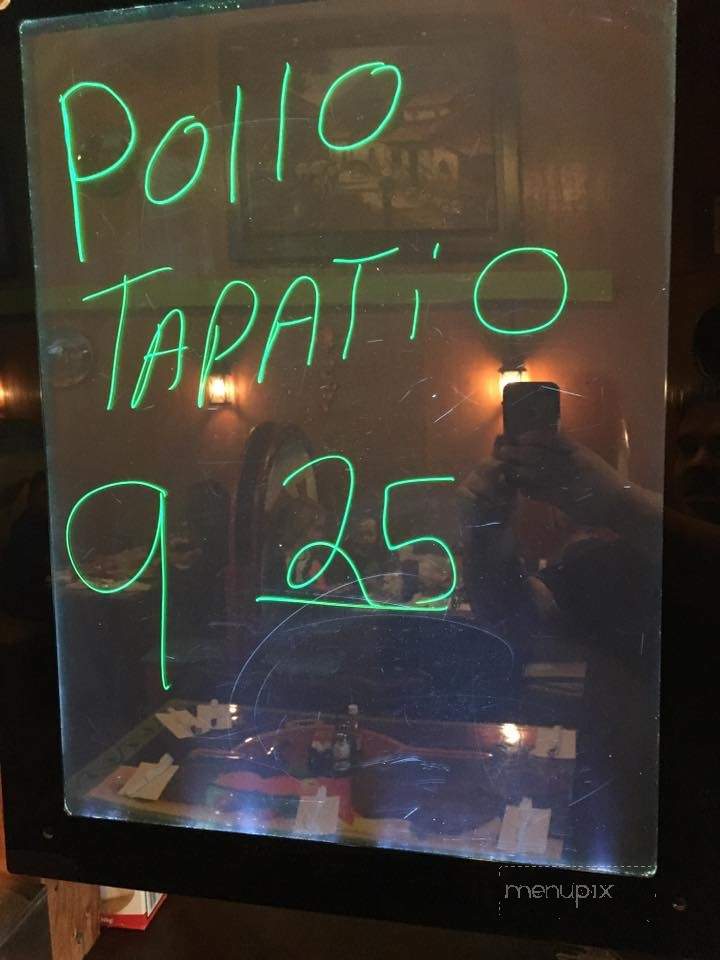 Pollo
TAPATiO
9 25
menupix